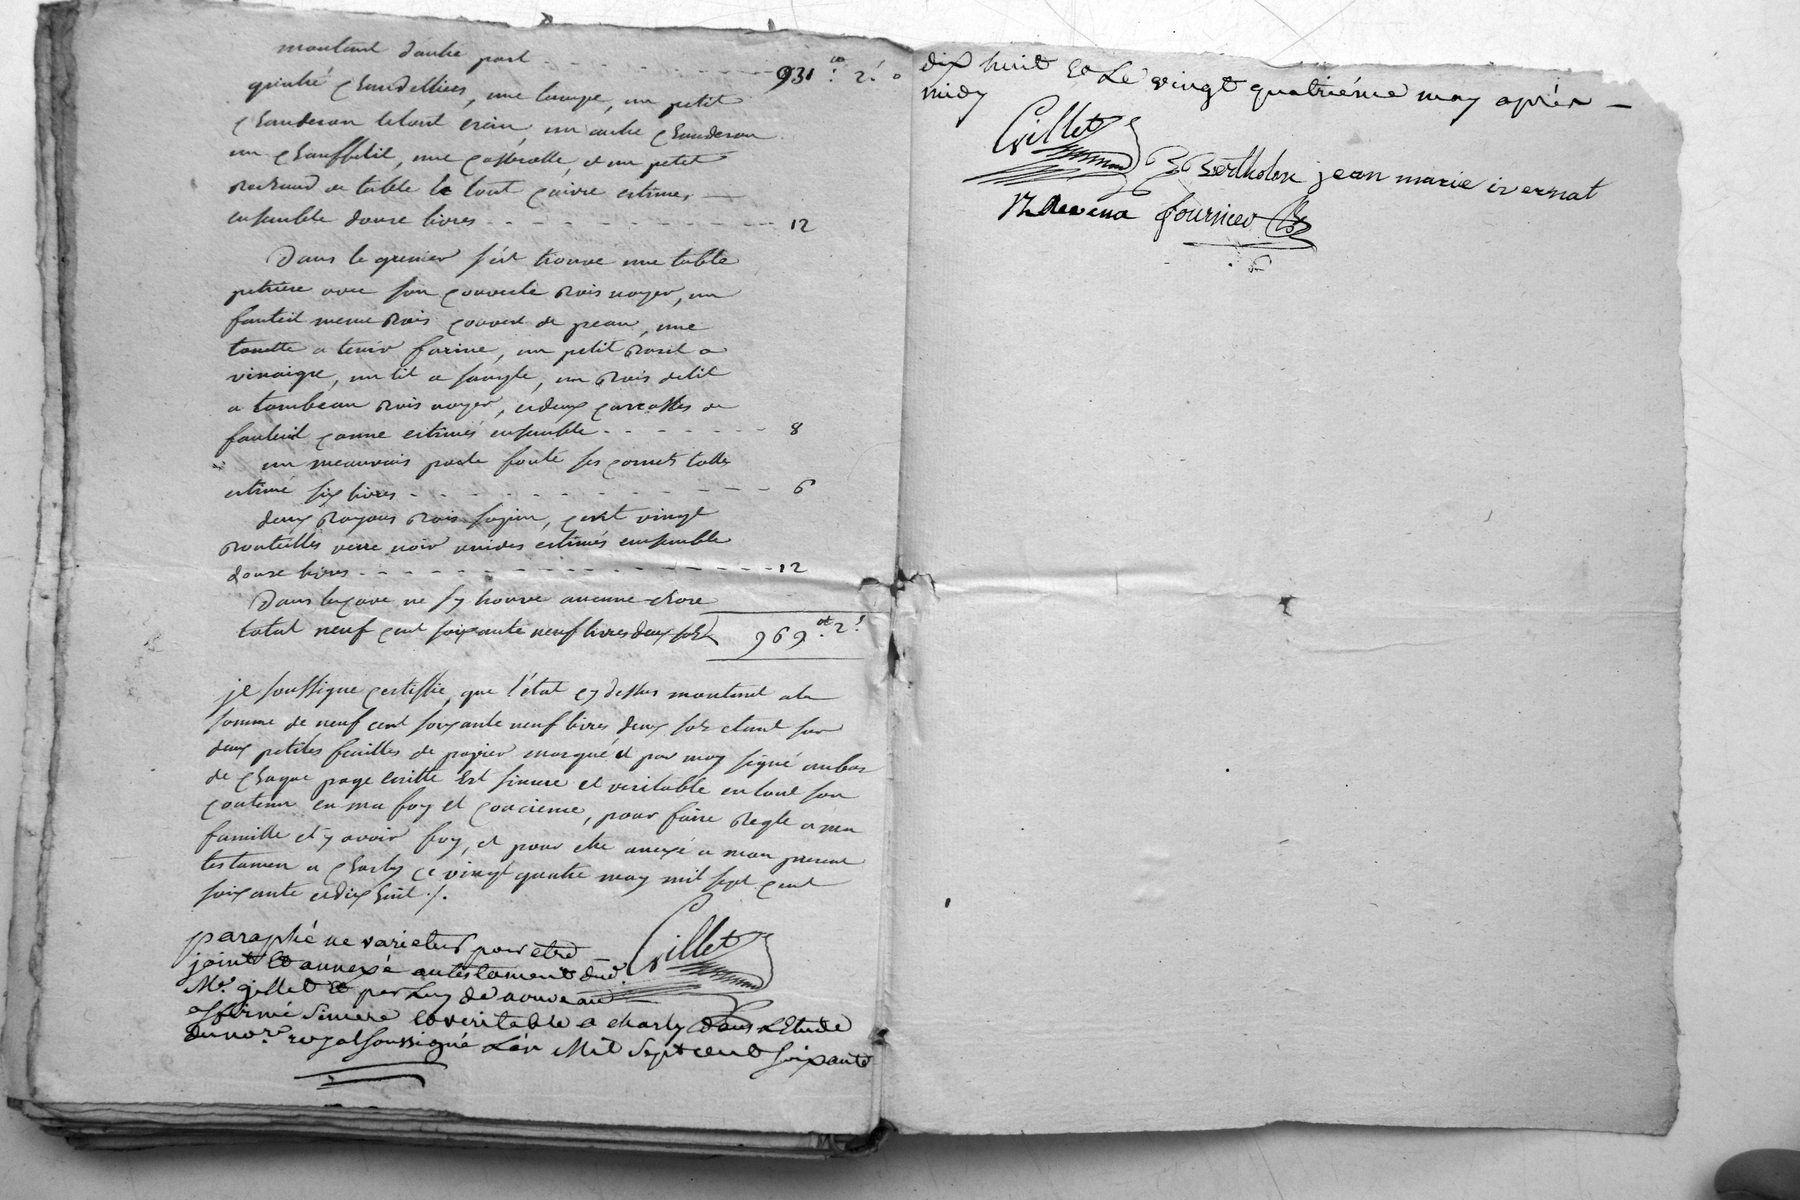 montant dautre part - - - - - - - - 931ᵗᵗ 2ˢ
quatre chandelliers, une lampe, un petit
chauderon letout erain, un autre chauderon
un chauffelit, une casserolle, et un petit
rechaud de table le tout cuivre estimes
ensemble douse livres - - - - - - - - 12
Dans le grenier s'est trouvé une table
petriere avec son couvercle bois noyer, un
fauteil meme bois couvert de peau, une
tenette a tenir farine, un petit baril a
vinaigre, un lit a sangle, un bois delit
a tombeau bois noyer, et deux carcasses de
fauteuil canne estimés ensemble - - - - - 8
un meauvais poele fonte ses cornets tolle
estimé six livres - - - - - - - - 6
deux rayons bois sapin, cent vingt
bouteilles verre noir vuides estimés ensemble
douse livres - - - - - - - - 12
Dans la cave ne s'y trouve aucune chose
total neuf cent soixante neuf livres deux sols 969ᵗᵗ 2ˢ
je soussigne certiffie, que l'état cy dessus montant a la
somme de neuf cent soixante neuf livres deux sols etant sur
deux petites feuilles de papier marqué et par moy signé aubas
de chaque page ecritte est sincere et veritable en tout son
contenu en ma foy et concience, pour faire regle a ma
famille et y avoir foy, et pour etre anexé a mon present
testamen a charly ce vingt quatre may mil sept cent
soixante et dix huit ./.
Gillet
paraphé ne varietur pour etre
joint et annexé autestament dud.
Mʳ. gillet et par Luy de nouveau
affirmé sincere et veritable a charly dans L'Etude
dunoʳᵉ royal soussigné L'an Mil Sept cent soixante
dix huit et Le vingt quatriéme may aprés
midy
Gillet
Bertholon jean marie ivernat
fournier